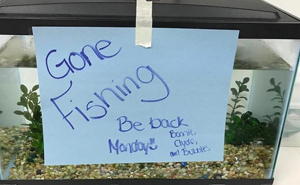 Gone
Fishing
Be back
Monday!!
Bonnie,
Clyde,
and Bubbles